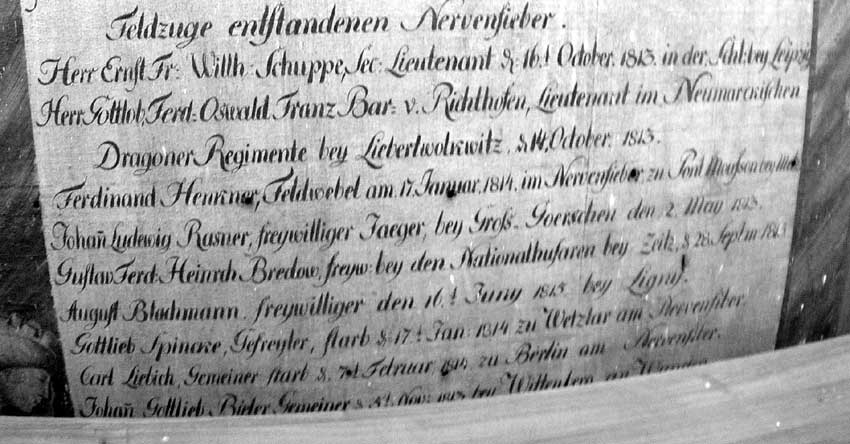 Feldzuge entstandenen Nervenfieber.
Herr Ernst Fr: Wilh: Schuppe, Sec: Lieutenant d. 16t October. 1813. in der Schl: bey Leipzig
Herr Gottlob, Ferd: Oswald Franz Bar: v. Richthofen, Lieutenant im Neumarckischen
Dragoner Regimente bey Liebertwolkwitz, d. 14, October. 1813.
Ferdinand Henkner, Feldwebel am 17. Januar. 1814. im Nervenfieber zu Pont bey
Johañ Ludewig Rasner, freywilliger Jaeger, bey Groß-Goerschen den 2. May 1813.
Gustav Ferd: Heinrch Bredow, freyw: bey den Nationalhusaren bey Zeitz, d 28 Sept 1813
August Blachmann. freywilliger den 16.t Juny 1815 bey Ligny.
Gottlieb Spincke, Gefreyter, starb d. 17t Jan: 1814 zu Wetzlar am Nervenfiber.
Carl Liebich, Gemeiner starb d. 7t Februar 1814 zu Berlin am Nervenfiber.
Johañ Gottlieb Bieler Gemeiner d 1813 bey